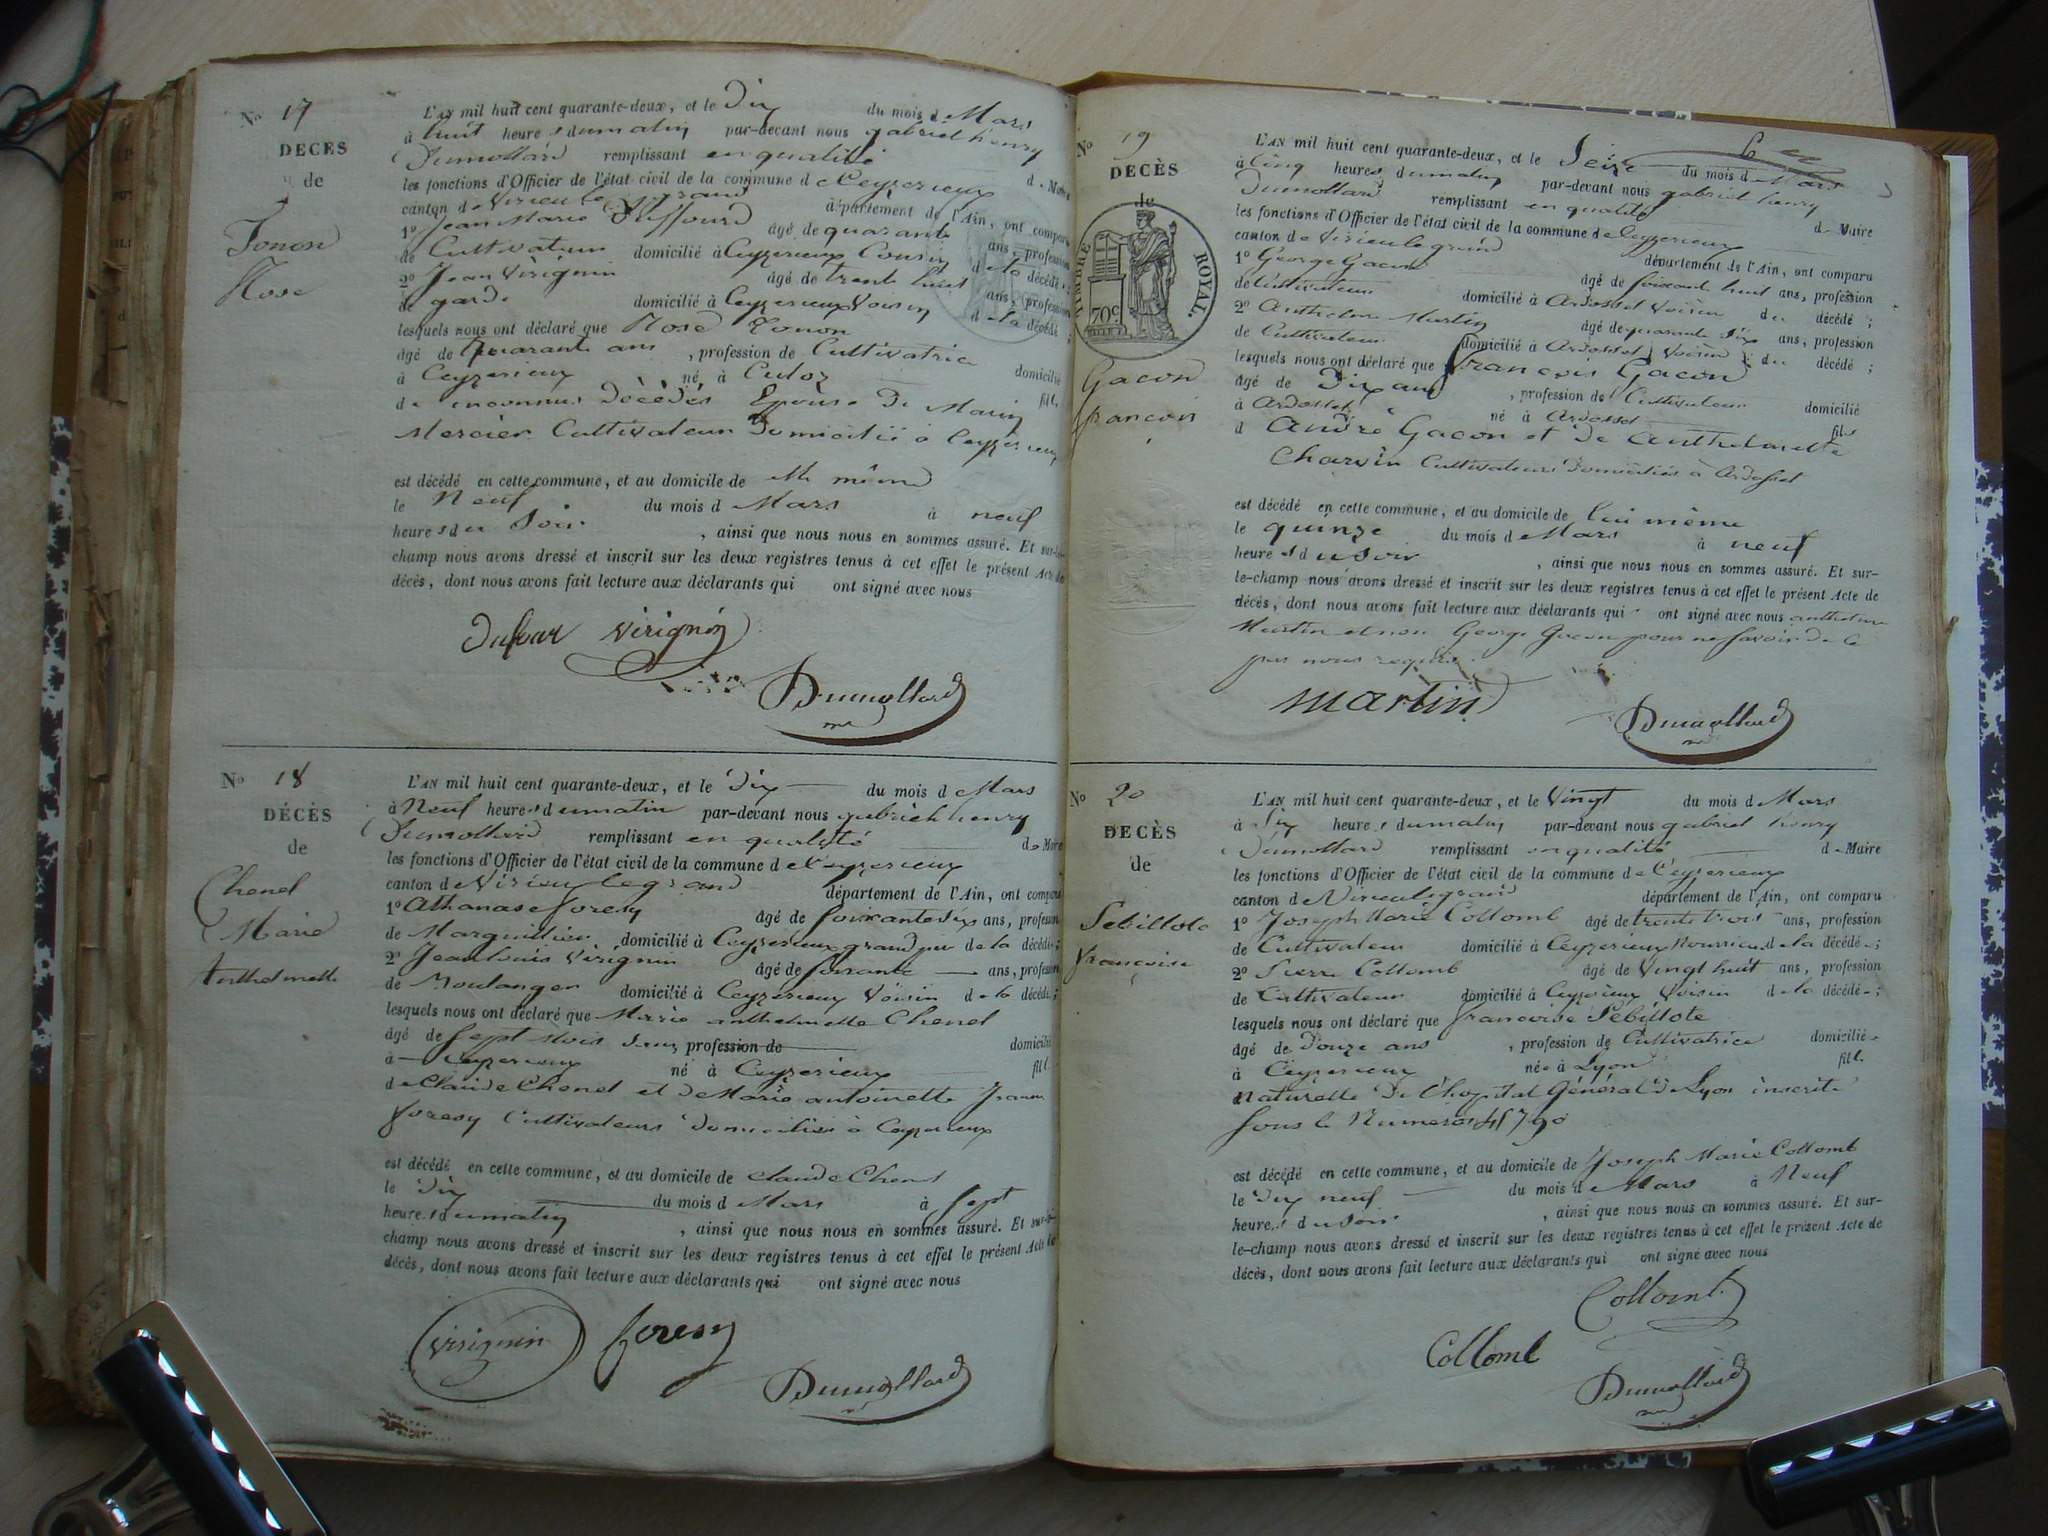 No 17
DECÈS
de
Rose
L'AN mil huit cent quarante-deux, et le Dix du mois d Mars
à huit heures du matin par-devant nous gabriel henry
Dumollard remplissant en qualité d Maire
les fonctions d'Officier de l'état civil de la commune d Ceyzerieux
canton de Virieu le grand département de l'Ain, ont comparu
1º Jean Marie âgé de quarante ans, profession
de Cultivateur domicilié à Ceyzerieux Cousin de la décédé ;
2º Jean Virignin âgé de trent huit ans, profession
de garde domicilié à Ceyzerieux Voisin d la décédé ;
lesquels nous ont déclaré que Rose Tonon
âgé de quarante ans , profession de Cultivatrice domicilié
à Ceyzerieux né à Culoz fill.
de inconnus Décédés Epouse De Marin
Mercier Cultivateur Domicilié à Ceyzerieux
est décédé en cette commune, et au domicile de même
le Neuf du mois d Mars à neuf
heures du Soir , ainsi que nous nous en sommes assuré. Et sur-le-
champ nous avons dressé et inscrit sur les deux registres tenus à cet effet le présent Acte de
décès, dont nous avons fait lecture aux déclarants qui ont signé avec nous
Virignin
Dumollard
No 18
DÉCÈS
de
Chenel
Marie
Anthelmette
L'AN mil huit cent quarante-deux, et le dix du mois d Mars
à Neuf heures du matin par-devant nous gabriel henry
Dumollard remplissant en qualité de Maire
les fonctions d'Officier de l'état civil de la commune de Ceyzerieux
canton de Virieu le grand département de l'Ain, ont comparu
1º Athanase foresy âgé de soixante dix ans, profession
de Marguillier domicilié à Ceyzerieux grand per de la décédé ;
2º Jean louis Virignin âgé de soixante ans, profession
de Boulanger domicilié à Ceyzerieux Voisin de la décédé ;
lesquels nous ont déclaré que Marie anthelmette Chenel
âgé de sept mois Sans profession de domicilié
à Ceyzerieux né à Ceyzerieux fill.
de Claude Chenel et de Marie antoinette
foresy Cultivateurs Domiciliés à Ceyzerieux
est décédé en cette commune, et au domicile de Claude Chenel
le dix du mois d Mars à sept
heures du matin , ainsi que nous nous en sommes assuré. Et sur-le-
champ nous avons dressé et inscrit sur les deux registres tenus à cet effet le présent Acte de
décès, dont nous avons fait lecture aux déclarants qui ont signé avec nous
Virignin foresy
Dumollard
No 19
DECÈS
de
TIMBRE ROYAL.
70c.
Gacon
françois
L'AN mil huit cent quarante-deux, et le Seize du mois d Mars
à Cinq heures du matin par-devant nous gabriel henry
Dumollard remplissant en qualité d Maire
les fonctions d'Officier de l'état civil de la commune de Ceyzerieux
canton de Virieu le grand département de l'Ain, ont comparu
1º George Gacon âgé de soixante huit ans, profession
de Cultivateur domicilié à Ardosset Voisin du décédé ;
2º Anthelme Martin âgé de quarante Six ans, profession
de Cultivateur domicilié à Ardosset Voisin du décédé ;
lesquels nous ont déclaré que françois Gacon
âgé de Dix ans , profession de Cultivateur domicilié
à Ardosset né à Ardosset fils
d André Gacon et de Anthelmette
Charvin Cultivateurs Domiciliés à Ardosset
est décédé en cette commune, et au domicile de lui même
le quinze du mois d Mars à neuf
heures du Soir , ainsi que nous nous en sommes assuré. Et sur-
le-champ nous avons dressé et inscrit sur les deux registres tenus à cet effet le présent Acte de
décès, dont nous avons fait lecture aux déclarants qui ont signé avec nous anthelme
Martin et non George Gacon pour ne savoir de ce
par nous requis.
martin
Dumollard
No 20
DECÈS
de
Sebillote
françoise
L'AN mil huit cent quarante-deux, et le Vingt du mois d Mars
à Six heures du matin par-devant nous gabriel henry
Dumollard remplissant en qualité d Maire
les fonctions d'Officier de l'état civil de la commune de Ceyzerieux
canton de Virieu le grand département de l'Ain, ont comparu
1º Joseph Marie Collomb âgé de trente trois ans, profession
de Cultivateur domicilié à Ceyzerieux Nourricier de la décédé ;
2º Pierre Collomb âgé de Vingt huit ans, profession
de Cultivateur domicilié à Ceyzerieux Voisin d la décédé ;
lesquels nous ont déclaré que françoise Sebillote
âgé de Douze ans , profession de Cultivatrice domicilié
à Ceyzerieux née à Lyon fill.
Naturelle De l'hopital Général de Lyon inscrite
sous le Numero
est décédé en cette commune, et au domicile de Joseph Marie Collomb
le Dix neuf du mois de Mars à Neuf
heures du Soir , ainsi que nous nous en sommes assuré. Et sur-
le-champ nous avons dressé et inscrit sur les deux registres tenus à cet effet le présent Acte de
décès, dont nous avons fait lecture aux déclarants qui ont signé avec nous
Collomb
Collomb
Dumollard